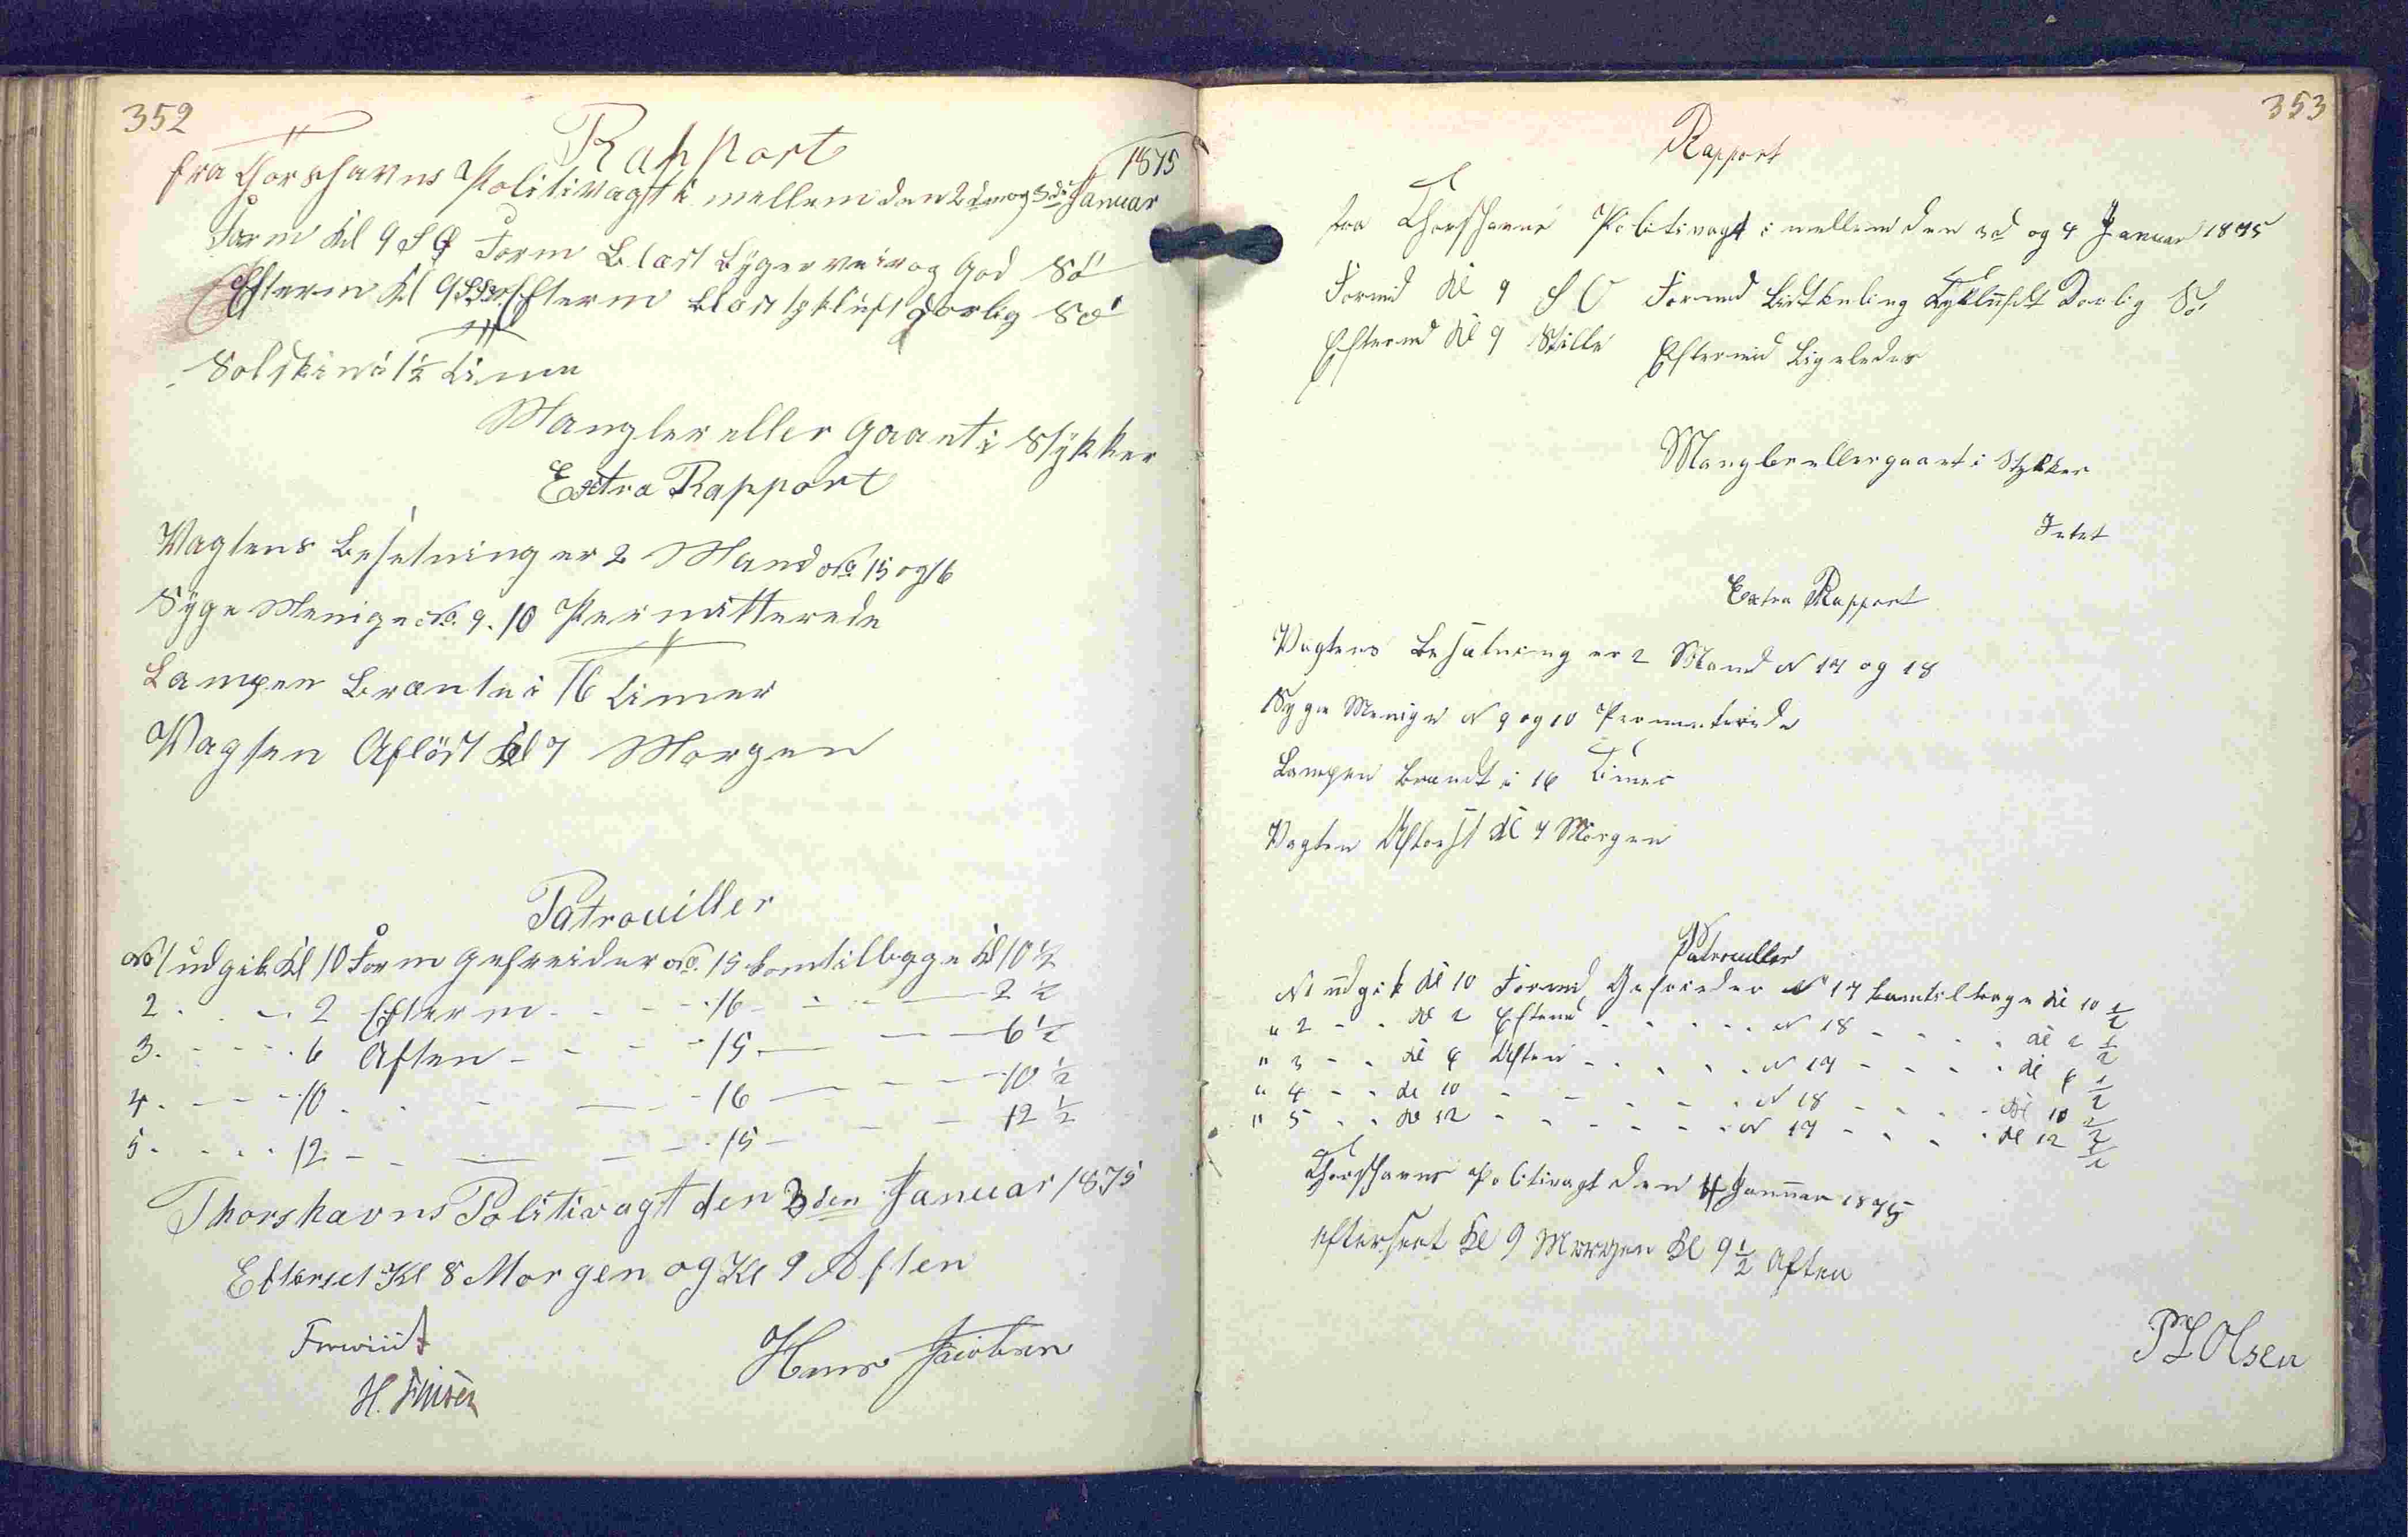 352
Rapport
fra Thorshavns Politivagt i mellem den 2den og 3die Januar 1875
Form Kl 9 S O Form Blæst Bygerveir og God Sö
Efterm Kl 9 Efterm Blæst tykluft Dorlig Sö
Solskin i 1½ Time
Mangler eller Gaaet i Stykker
Extra Rapport
Vagtens Besetning er 2 Mand No 15 og 16
Syge Menige No. 9. 10 Permitterede
Lampen Brænte i 16 Timer
Vagten Aflöst Kl 7 Morgen
Patrouiller
No 1 udgik Kl 10 Form Gefreider No. 15 kom tilbage Kl 10 ½
2 - - 2 Efterm - - - 16 - - - 2 ½
3. - - - 6 Aften - - - 15 - - - 6 ½
4. - - - 10 - - - 16 - - - 10 ½
5. - - - 12 - - - 15 - - - 12 ½
Thorshavns Politivagt den 3den Januar 1875
Efterset Kl 8 Morgen og Kl 9 Aften
Hans Jacobsen
H. Finsen
353
Rapport
fra Thorshavns Politivagt i mellem den 3d og 4 Januar 1875
Formd Kl 9 S O Formd Lidt kuling Tykluft Dorlig Sö
Eftermd Kl 9 Stille Eftermd Ligeledes
Mangler eller gaaet i Stykker
Intet
Extra Rapport
Vagtens Besætning er 2 Mand N 17 og 18
Syge Menige N 9 og 10 Permenterede
Lampen Brændt i 16 Timer
Vagten Afloest Kl 7 Morgen
Patrouller
N 1 udgik Kl 10 Formd Gefreider N 17 kom tilbage Kl 10 ½
" 2 - - Kl 2 Efterm - - - - N 18 - - - Kl 2 ½
" 3 - - Kl 6 Aften - - - - N 17 - - - Kl 6 ½
" 4 - - Kl 10 - - - - N 18 - - - Kl 10 ½
" 5 - - Kl 12 - - - - N 17 - - - Kl 12 ½
Thorshavns Politivagt den 4 Januar 1875
efterseet Kl 9 Morgen Kl 9½ Aften
Olsen